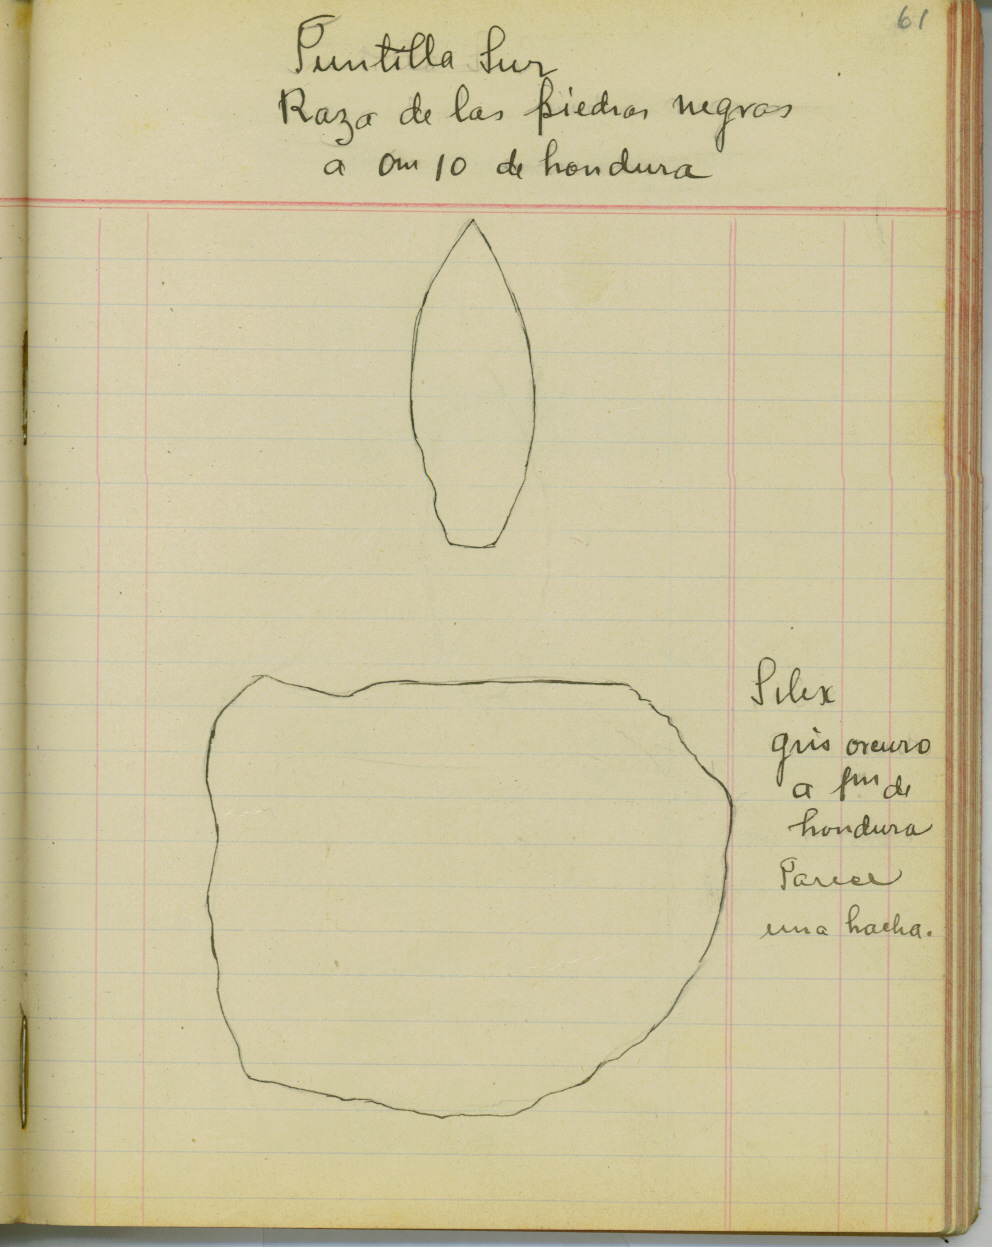 61
Puntilla Sur
Raza de las piedras negras
a 0m 10 de hondura
Silex
gris oscuro
a 1m de
hondura
Parece
una hacha.